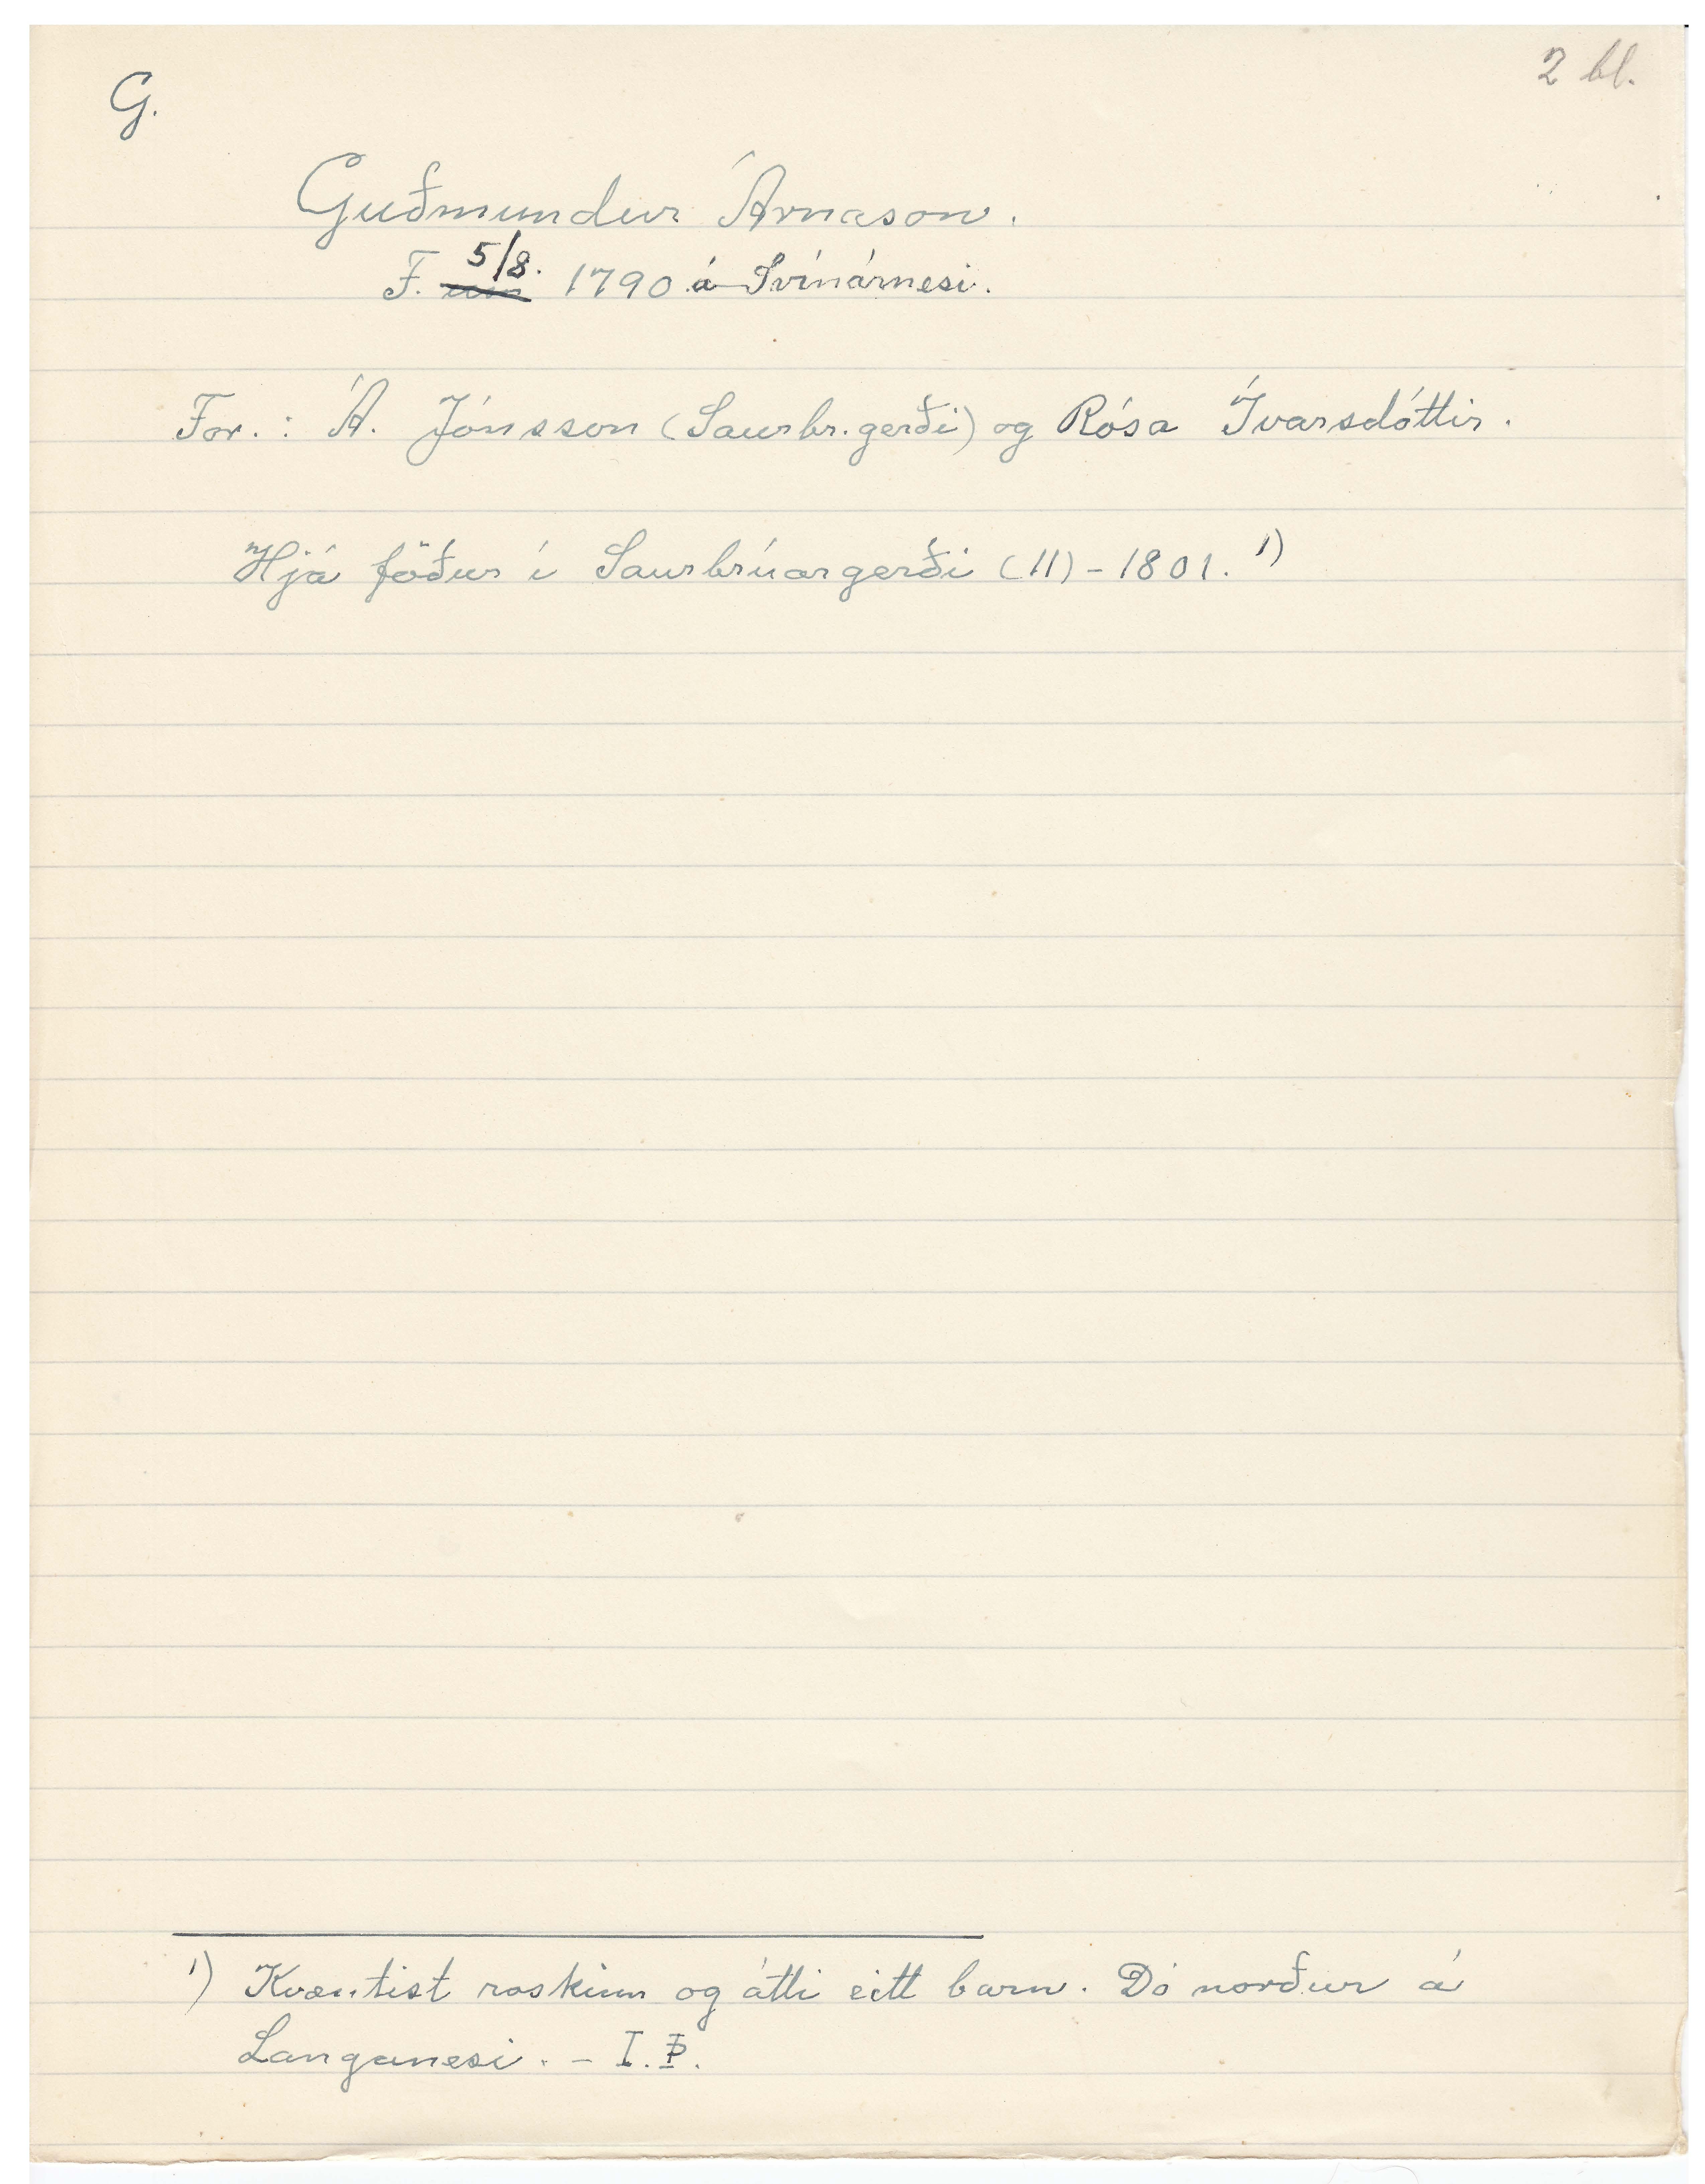 2 bl.
G.
Guðmundur Árnason.
F. 5/8. 1790 á Svínárnesi.
For.: Á. Jónsson (Saurbr.gerði) og Rósa Ívarsdóttir.
Hjá föður í Saurbrúargerði (11) - 1801. 1)
1) Kvæntist roskinn og átti eitt barn. Dó norður á
Langanesi. - I. Þ.